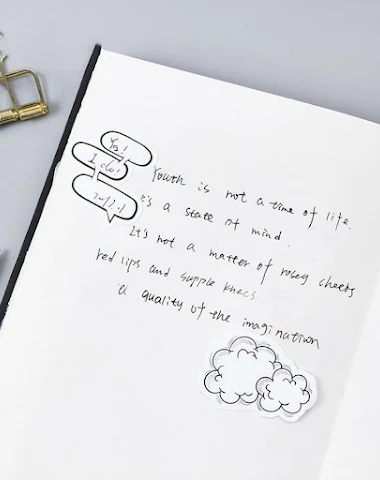 Yes!
I do!
Youth is not a time of life.
it's a state of mind.
It's not a matter of rosey cheeks
red lips and supple knees
a quality of the imagination